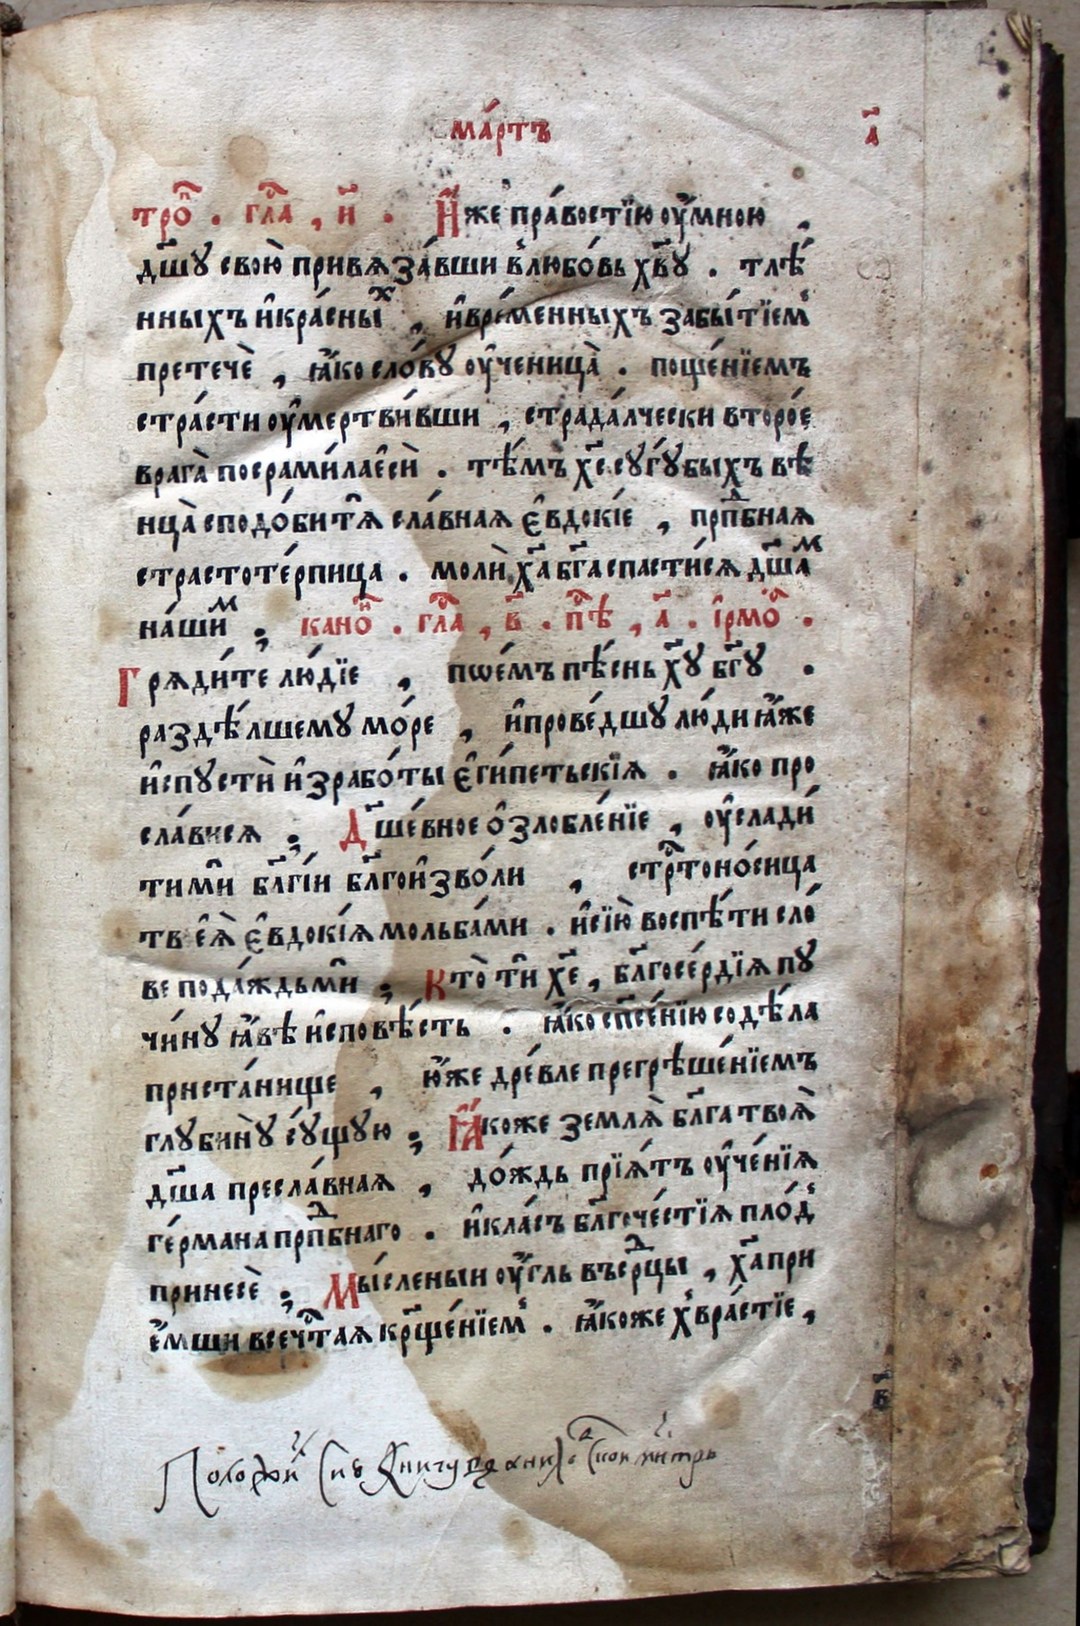 ма́ртъ
а҃
тро̑ⷫ . гл҃а , и҃ . И҆́же пра́востїю ѹ҆́мною ,
дш҃ꙋ свою̀ привѧза́вши в̾любо́вь хв҃ꙋ . тлѣ́
нныхъ и҆кра́сныⷯ , и҆вре́менныхъ забы́тїем̾
претечѐ , ꙗ҆́ко сло́вꙋ ѹ҆ченица̀ . поще́нїемъ
стра́сти ѹ҆мертви́вши , страда́лчески второ́е
врага̀ посрами́ла є҆сѝ . тѣ́мъ хе҃ сꙋгꙋ́быхъ вѣ
нца̀ сподо́би тѧ̑ сла́внаѧ є҆вдокі́е , прпⷣбнаѧ
страстоте́рпица . молѝ ха҃ бг҃а спасти́сѧ дш҃аⷨ
на́шиⷨ ; кано̑ⷩ . гл҃а , в҃ . пѣ̑ , а҃ . і҆рмо̑ .
Грѧди́те лю́дїе , пѡе́мъ пѣ́снь хꙋ҃ бг҃ꙋ .
раздѣ́лшемꙋ мо́ре , и҆прове́дшꙋ лю́ди ꙗ҆̀же
и҆спꙋстѝ и҆зрабо́ты є҆ги́петьскїѧ . ꙗ҆́ко про
сла́висѧ . Дш҃е́вное ѻ҆злобле́нїе , ѹ҆слади́
ти ми̑ бл҃гі́и бл҃гои҆зво́ли , стрⷭ҇тоно́сица
тв є҆ѧ̀ є҆вдокі́ѧ мольба́ми . и҆сїю̀ воспѣ́ти сло́
ве пода́ждь ми̑ ; Кто̀ ти̑ хе҃ , бл҃госе́рдїѧ пꙋ
чи́нꙋ ꙗ҆́вѣ и҆сповѣ́сть . ꙗ҆́ко спⷭ҇е́нїю содѣ́ла
приста́нище , ю҆́же дре́вле прегрѣше́нїемъ
глꙋбинꙋ̀ сꙋ́щꙋю ; Ꙗ҆́коже землѧ̀ бл҃га твоѧ̀
дш҃а пресла́внаѧ , до́ждь прїѧ́тъ ѹ҆че́нїѧ
ге́рмана прпⷣбнаго . и҆кла́съ бл҃гоче́стїѧ пло́д̾
принесѐ ; Мы́сленыи ѹ҆́гль въсрⷣцы , ха҃ при
е҆́мши всечⷭ҇таѧ крⷭ҇ще́нїем̾ . ꙗ҆́коже х̾вра́стїе ,
в҃